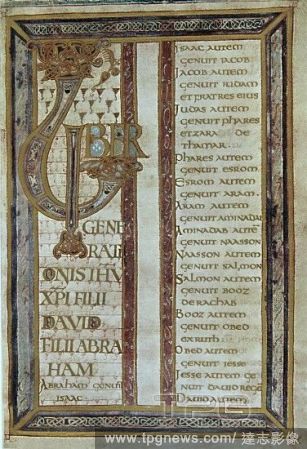 LIBER
GENE
RATI
ONIS IHV
XPI FILII
DAVID
FILII ABRA
HAM
ABRAHAM GENUIT
ISAAC
ISAAC AUTEM
GENUIT IACOB
IACOB AUTEM
GENUIT IUDAM
ET FRATRES EIUS
IUDAS AUTEM
GENUIT PHARES
ET ZARA DE
THAMAR
PHARES AUTEM
GENUIT ESROM
ESROM AUTEM
GENUIT ARAM
ARAM AUTEM
GENUIT AMINADAB
AMINADAB AUTĒ
GENUIT NAASSON
NAASSON AUTEM
GENUIT SALMON
SALMON AUTEM
GENUIT BOOZ
DE RACHAB
BOOZ AUTEM
GENUIT OBED
EX RUTH
OBED AUTEM
GENUIT IESSE
IESSE AUTEM GE
NUIT DAVID REGĒ
DAVID AUTEM
TPG
www.tpgnews.com / 達志影像